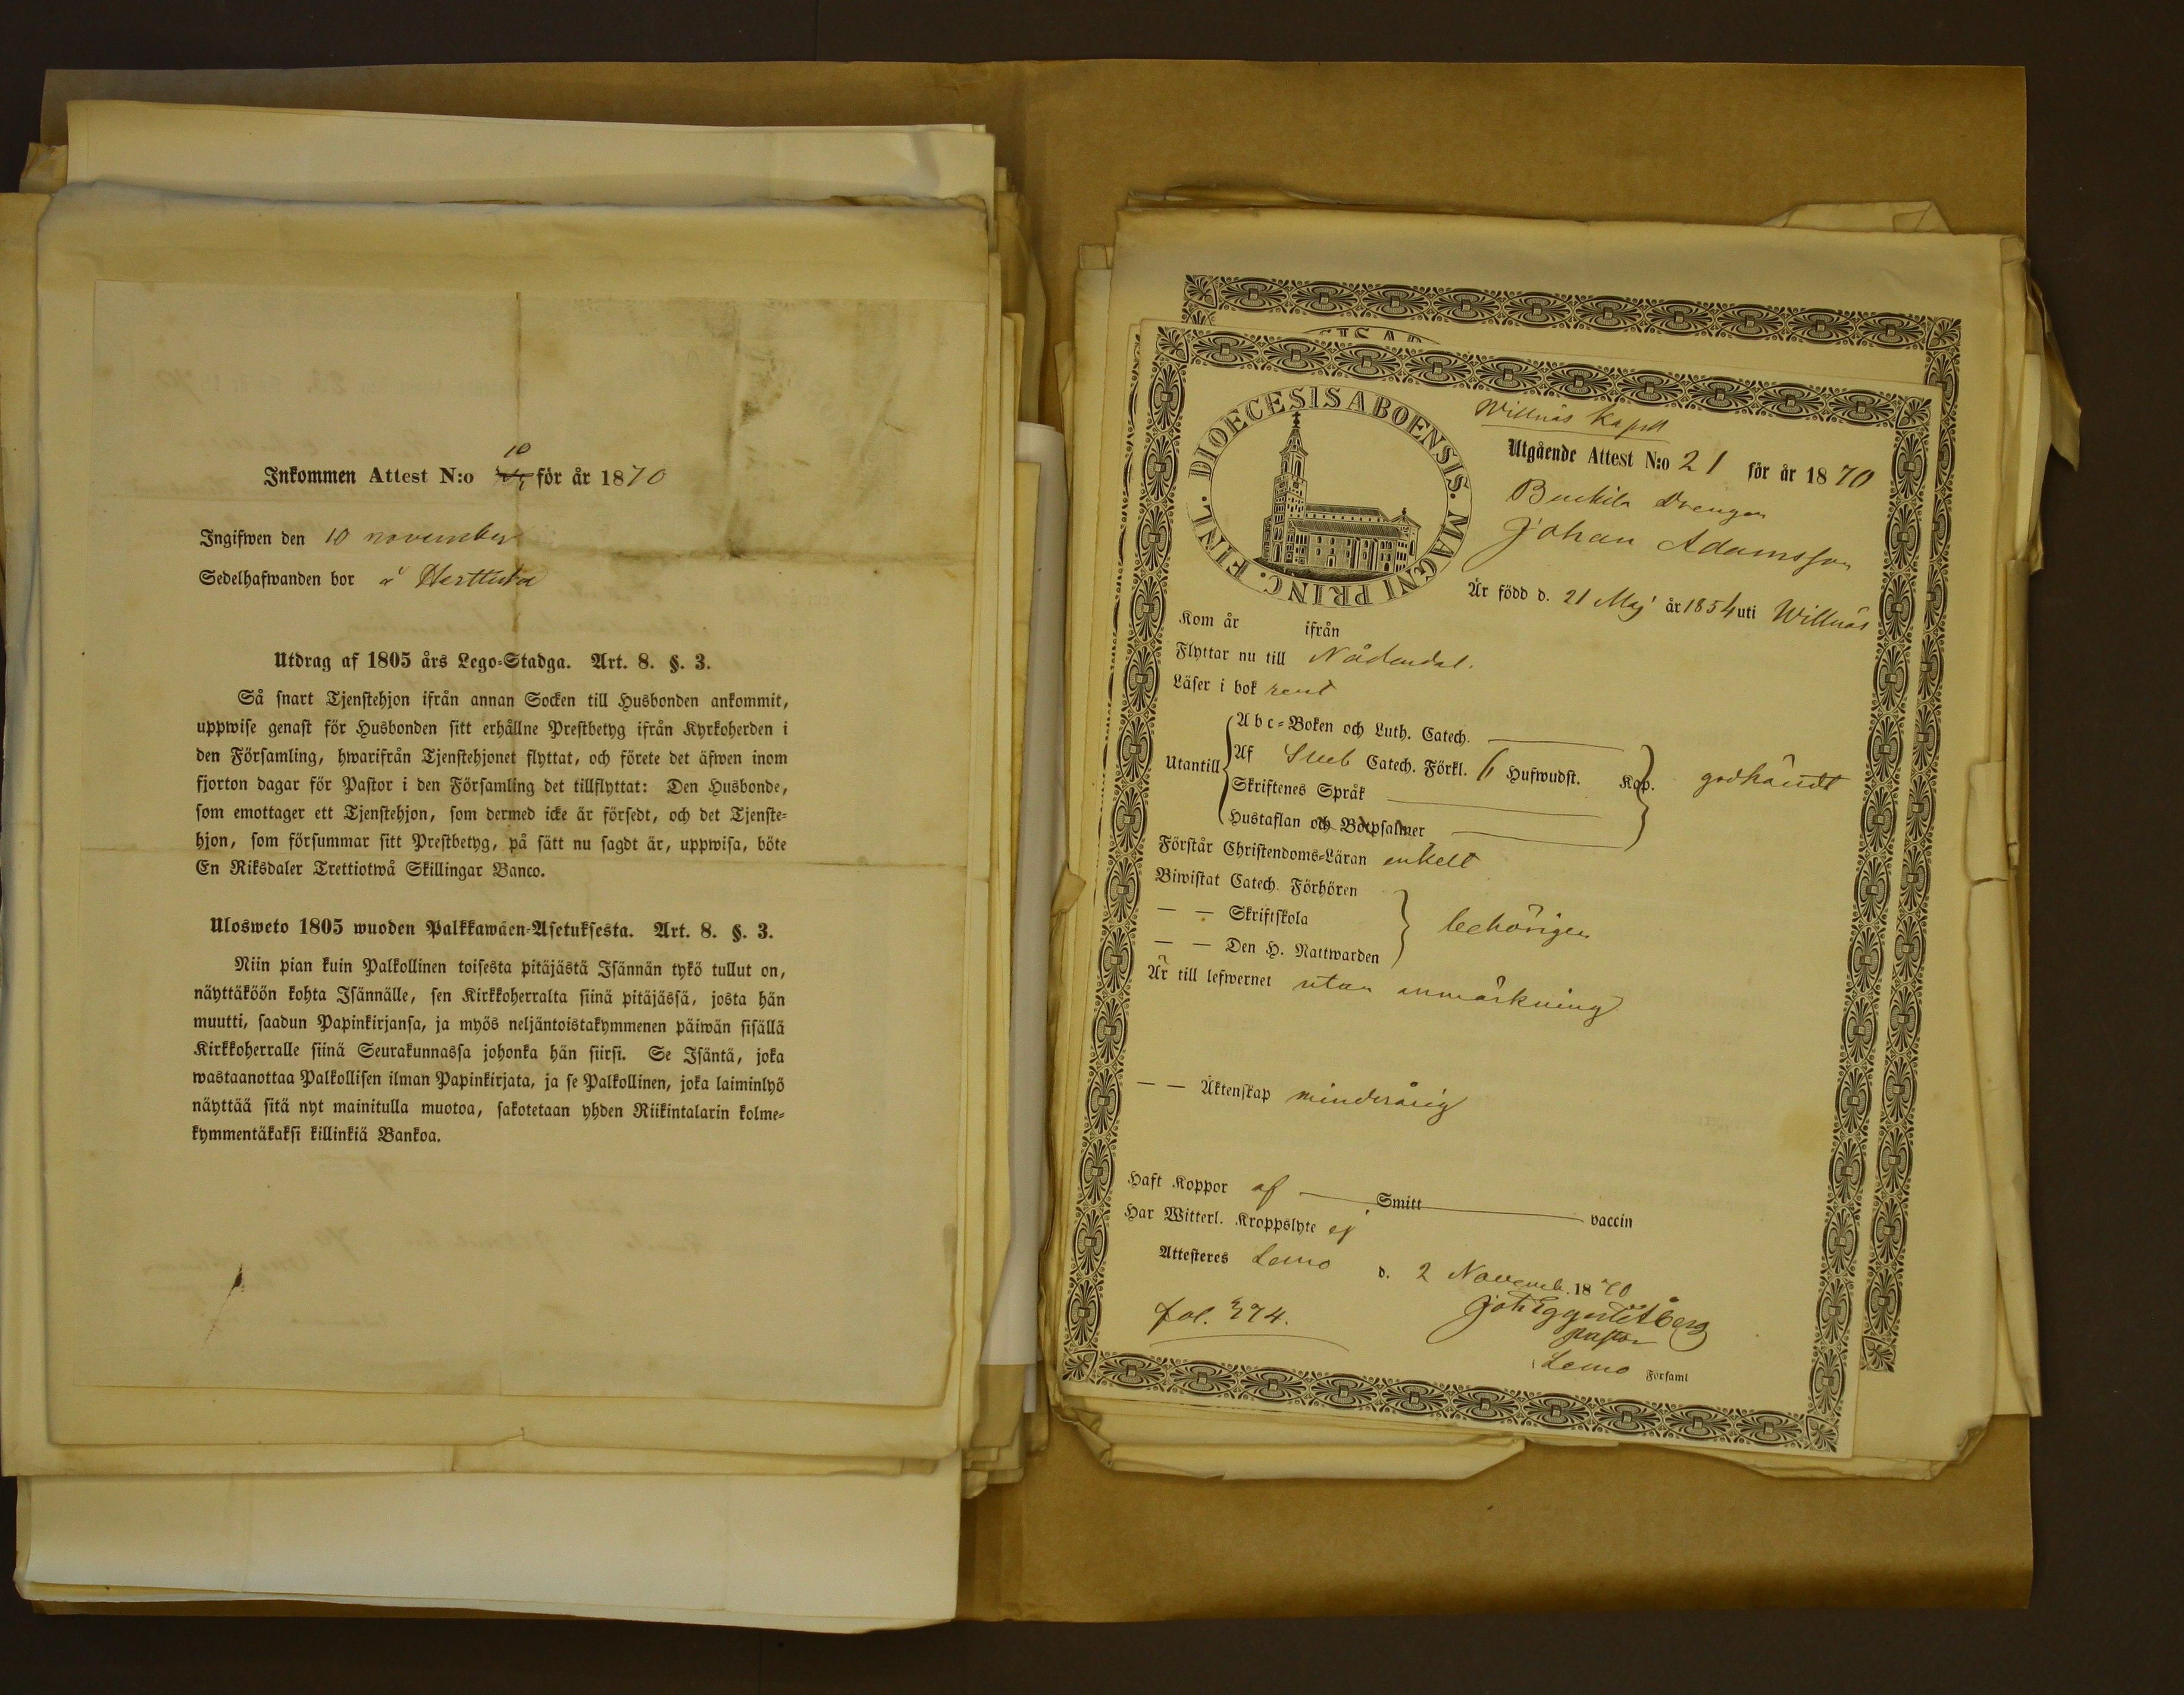 10
Inkommen Attest N:o för år 1870
Ingifwen den 10 november
Sedelhafwanden bor å Herttula
Utdrag af 1805 års Lego-Stadga. Art. 8. §. 3.
Så snart Tjenstehjon ifrån annan Socken till Husbonden ankommit,
uppwise genast för Husbonden sitt erhållne Prestbetyg ifrån Kyrkoherden i
den Församling, hwarifrån Tjenstehjonet flyttat, och förete det äfwen inom
fjorton dagar för Pastor i den Församling det tillflyttat: Den Husbonde,
som emottager ett Tjenstehjon, som dermed icke är försedt, och det Tjenste-
hjon, som försummar sitt Prestbetyg, på sätt nu sagdt är, uppwisa, böte
En Riksdaler Trettiotwå Skillingar Banco.
Ulosweto 1805 wuoden Palkkawäen-Asetuksesta. Art. 8. §. 3.
Niin pian kuin Palkollinen toisesta pitäjästä Isännän tykö tullut on,
näyttäköön kohta Isännälle, sen Kirkkoherralta siinä pitäjässä, josta hän
muutti, saadun Papinkirjansa, ja myös neljäntoistakymmenen päiwän sisällä
Kirkkoherralle siinä Seurakunnassa johonka hän siirsi. Se Isäntä, joka
wastaanottaa Palkollisen ilman Papinkirjata, ja se Palkollinen, joka laiminlyö
näyttää sitä nyt mainitulla muotoa, sakotetaan yhden Riikintalarin kolme-
kymmentäkaksi killinkiä Bankoa.
DIOECESIS ABOENSIS. MAGNI PRINC. FINL.
Willnäs Kapell
Utgående Attest N:o 21 för år 1870
Drengen
Johan Adamsson
Är född d. 21 Maj år 1854 uti Willnäs
Kom år ifrån
Flyttar nu till Nådendal.
Läser i bok rent
Utantill
Abc-Boken och Luth. Catech.
Af Sveb Catech. Förkl. 6 Hufwudst. Kap. godkändt
Skriftenes Språk
Hustaflan och Botpsalmer
Förstår Christendoms-Läran enkelt
Biwistat Catech. Förhören
— — Skriftskola behörigen
— — Den H. Nattwarden
Är till lefwernet utan anmärkning
— — Äktenskap minderårig
Haft Koppor af — Smitt — vaccin
Har Witterl. Kroppslyte ej
Attesteres Lemo d. 2 Novemb. 1870
fol. 394.
Pastor
Lemo Församl